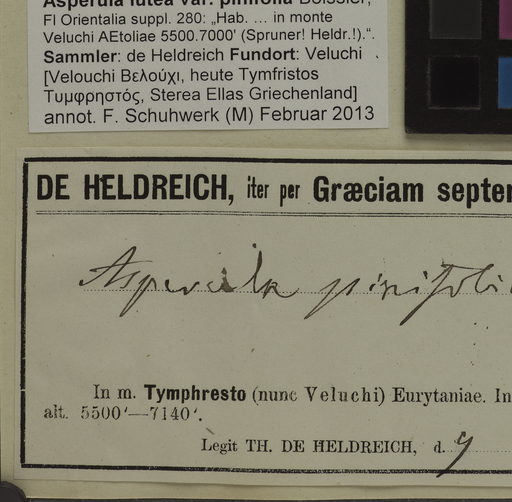 Asperula lutea var. pinifolia Boissier,
Fl Orientalia suppl. 280: „Hab. ... in monte
Veluchi AEtoliae 5500.7000' (Spruner! Heldr.!).“.
Sammler: de Heldreich Fundort: Veluchi
[Velouchi Βελούχι, heute Tymfristos
Τυμφρηστός, Sterea Ellas Griechenland]
annot. F. Schuhwerk (M) Februar 2013
DE HELDREICH, iter per Græciam septen
Asperula pinifoli
In m. Tymphresto (nunc Veluchi) Eurytaniae. In
alt. 5500'—7140'.
Legit TH. DE HELDREICH, d. 9